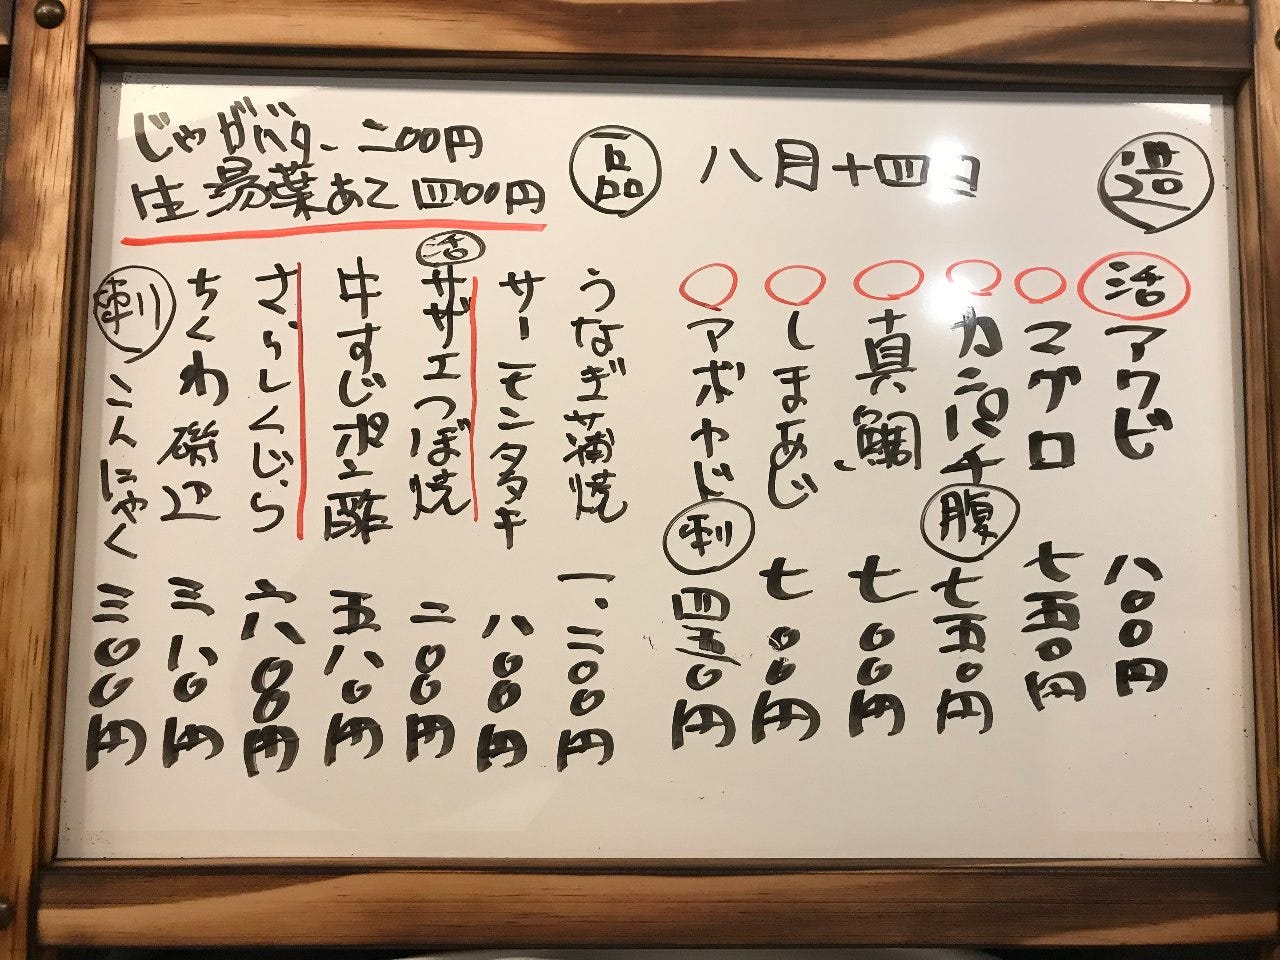 造
八月十四日
活 アワビ 八〇〇円
〇マグロ 七五〇円
〇カンパチ 腹 七五〇円
〇真鯛 七〇〇円
〇しまあじ 七〇〇円
〇アボカド 刺 四五〇円
一品
うなぎ蒲焼 一、二〇〇円
サーモンタタキ 八〇〇円
活 サザエつぼ焼 二〇〇円
牛すじポン酢 五八〇円
さらしくじら 六八〇〇円
ちくわ磯辺 三八〇円
刺 こんにゃく 三〇〇円
じゃがバター 二〇〇円
生湯葉あて 四〇〇円